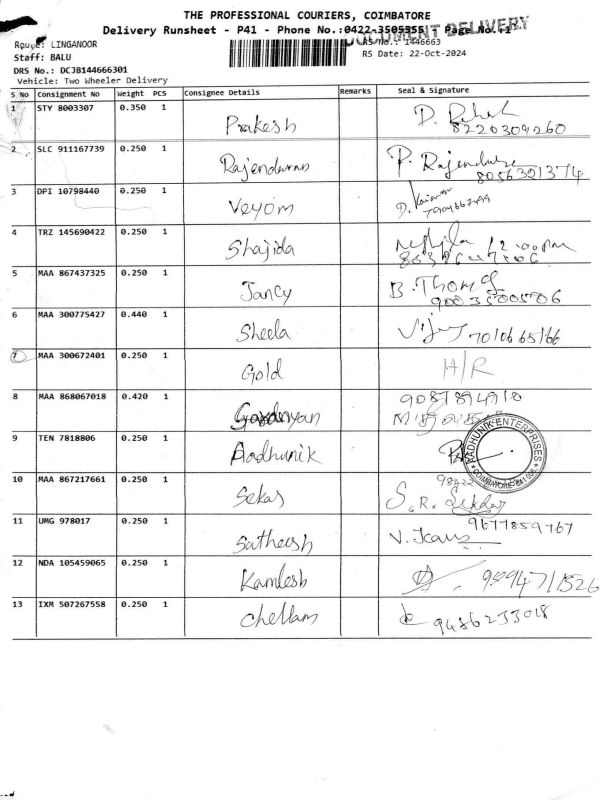 THE PROFESSIONAL COURIERS, COIMBATORE
Delivery Runsheet - P41 - Phone No.:0422-3505355 Page No.:1
DOCUMENT DELIVERY
Route: LINGANOOR
RS No.: 1446663
Staff: BALU
RS Date: 22-Oct-2024
DRS No.: DCJB144666301
Vehicle: Two Wheeler Delivery
S No Consignment No Weight PCS Consignee Details Remarks Seal & Signature
1 STY 8003307 0.350 1 Prakesh
8220309260
2 SLC 911167739 0.250 1 Rajendaran P. Rajendran
8056321374
3 DPI 10798440 0.250 1 Veyom
4 TRZ 145690422 0.250 1 Shajida 12.00pm
5 MAA 867437325 0.250 1 Jancy B. Thomas
6 MAA 300775427 0.440 1 Sheela Vijay 7010665166
7 MAA 300672401 0.250 1 Gold H/R
8 MAA 868067018 0.420 1
9087894910
9 TEN 7818806 0.250 1 Aadhunik
AADHUNIK ENTERPRISES
10 MAA 867217661 0.250 1 Sekar S.R. Sekar
11 UMG 978017 0.250 1 Satheesh 9677859767
12 NDA 105459065 0.250 1 Kamlesh 9994711526
13 IXM 507267558 0.250 1 Chellam 9486233018